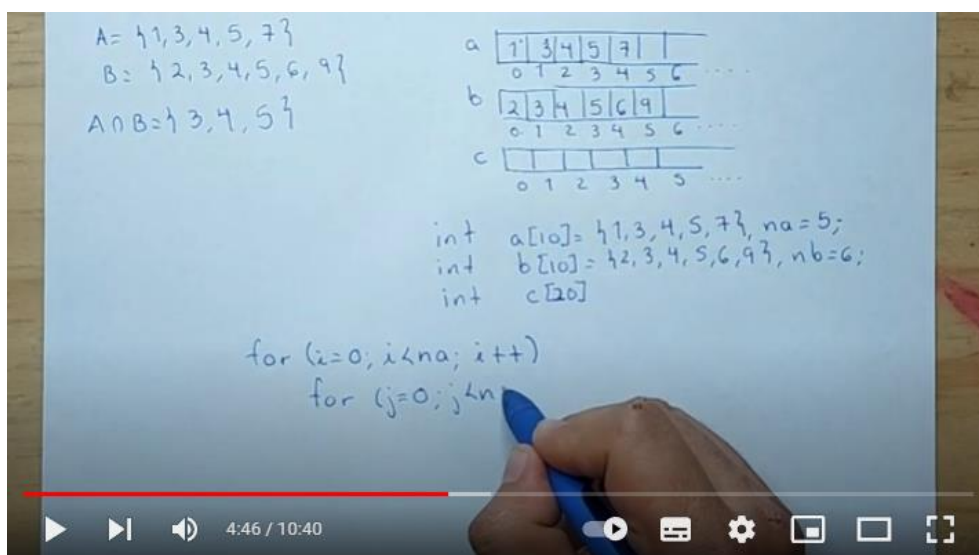 A = {1, 3, 4, 5, 7}
B: {2, 3, 4, 5, 6, 9}
A∩B = {3, 4, 5}
a 1 3 4 5 7
0 1 2 3 4 5 6 ....
b 2 3 4 5 6 9
0 1 2 3 4 5 6 ....
c
0 1 2 3 4 5 ....
int a[10] = {1, 3, 4, 5, 7}, na = 5;
int b[10] = {2, 3, 4, 5, 6, 9}, nb = 6;
int c[20]
for (i=0; i<na; i++)
for (j=0; j<n
4:46 / 10:40